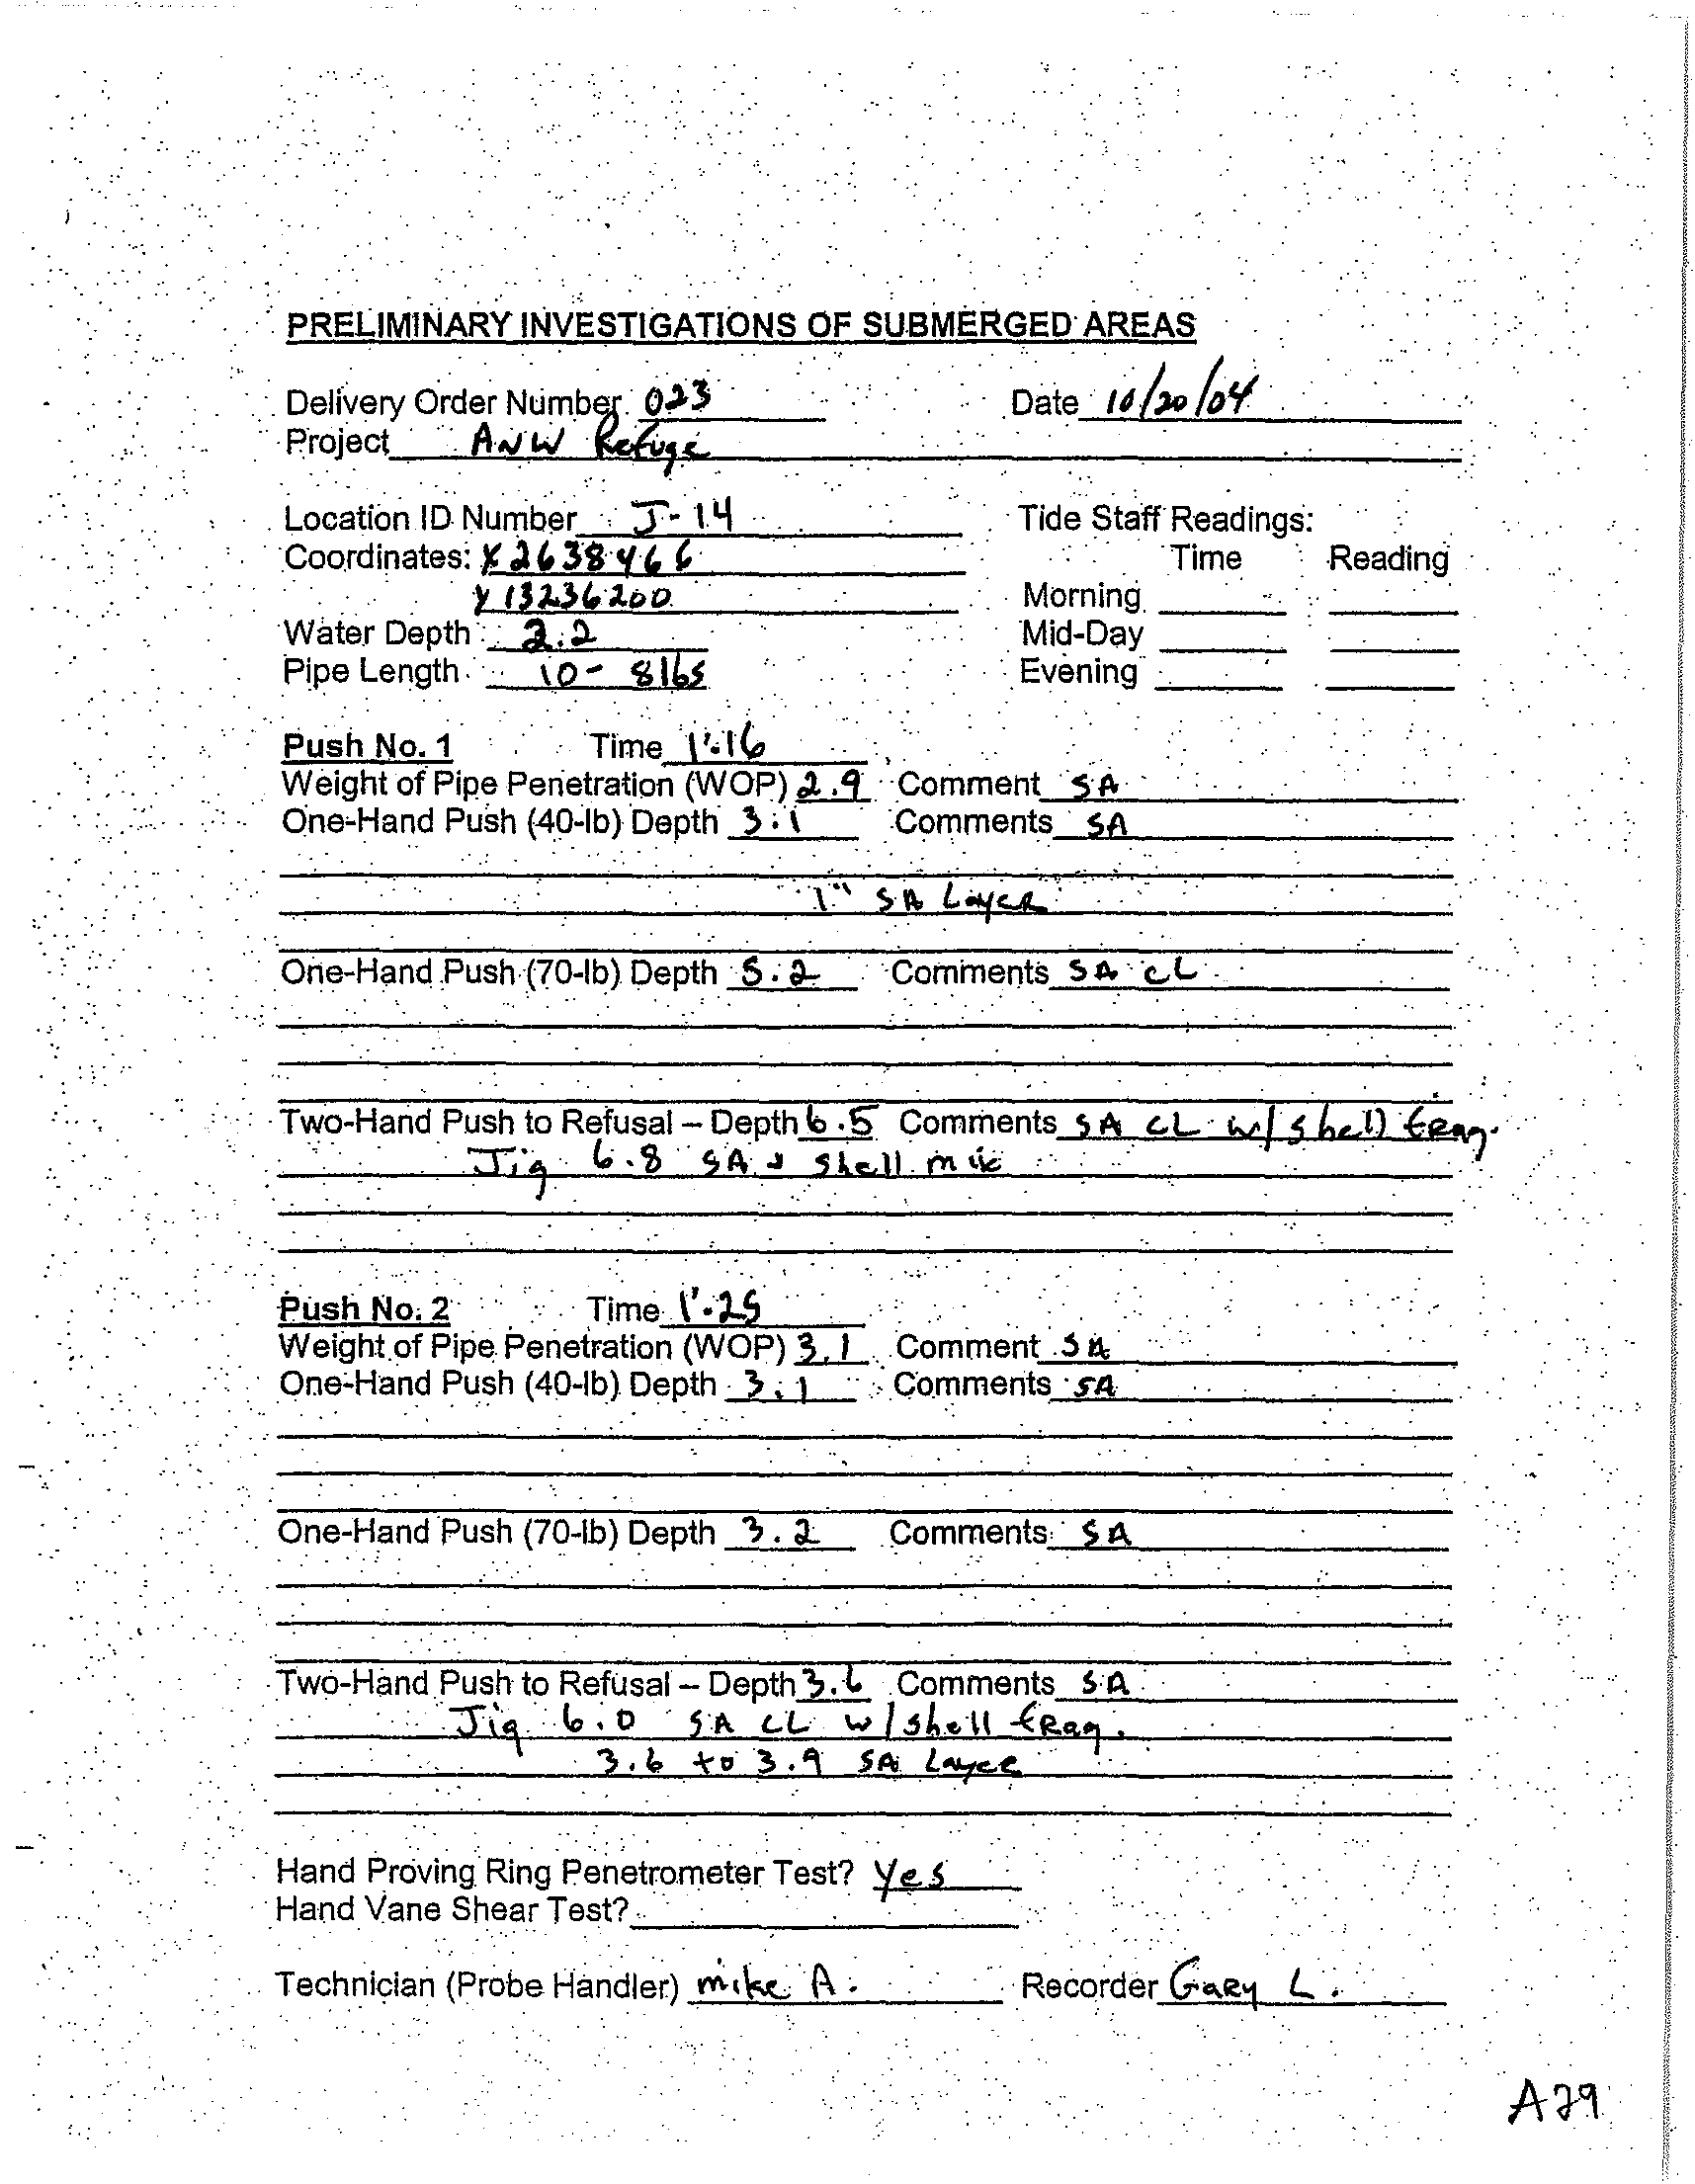 PRELIMINARY INVESTIGATIONS OF SUBMERGED AREAS
Delivery Order Number 023 Date 10/20/04
Project ANW Refuge
Location ID Number J-14 Tide Staff Readings:
Coordinates: X 2638466 Time Reading
Y 13236200 Morning
Water Depth 2.2 Mid-Day
Pipe Length 10- 8lbs Evening
Push No. 1 Time 1:16
Weight of Pipe Penetration (WOP) 2.9 Comment SA
One-Hand Push (40-lb) Depth 3.1 Comments SA
1" SA Layer
One-Hand Push (70-lb) Depth 5.2 Comments SA CL
Two-Hand Push to Refusal – Depth 6.5 Comments SA CL w/ shell frag.
Jig 6.8 SA & shell mix
Push No. 2 Time 1:25
Weight of Pipe Penetration (WOP) 3.1 Comment SA
One-Hand Push (40-lb) Depth 3.1 Comments SA
One-Hand Push (70-lb) Depth 3.2 Comments SA
Two-Hand Push to Refusal – Depth 3.6 Comments SA
Jig 6.0 SA CL w/ shell fRag.
3.6 to 3.9 SA Layer
Hand Proving Ring Penetrometer Test? Yes
Hand Vane Shear Test?
Technician (Probe Handler) mike A. Recorder GaRy L.
A29